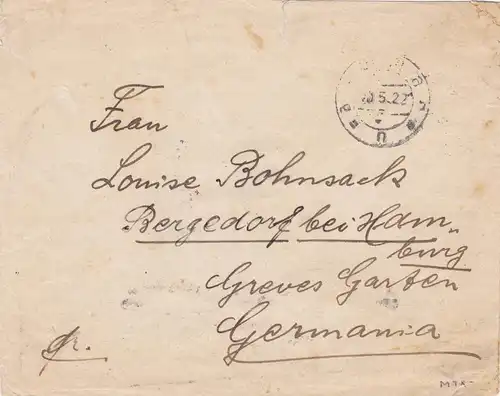 20.5.22
Frau
Louise Bohnsack
Bergedorf bei Ham-
burg
Greves Garten
Germania